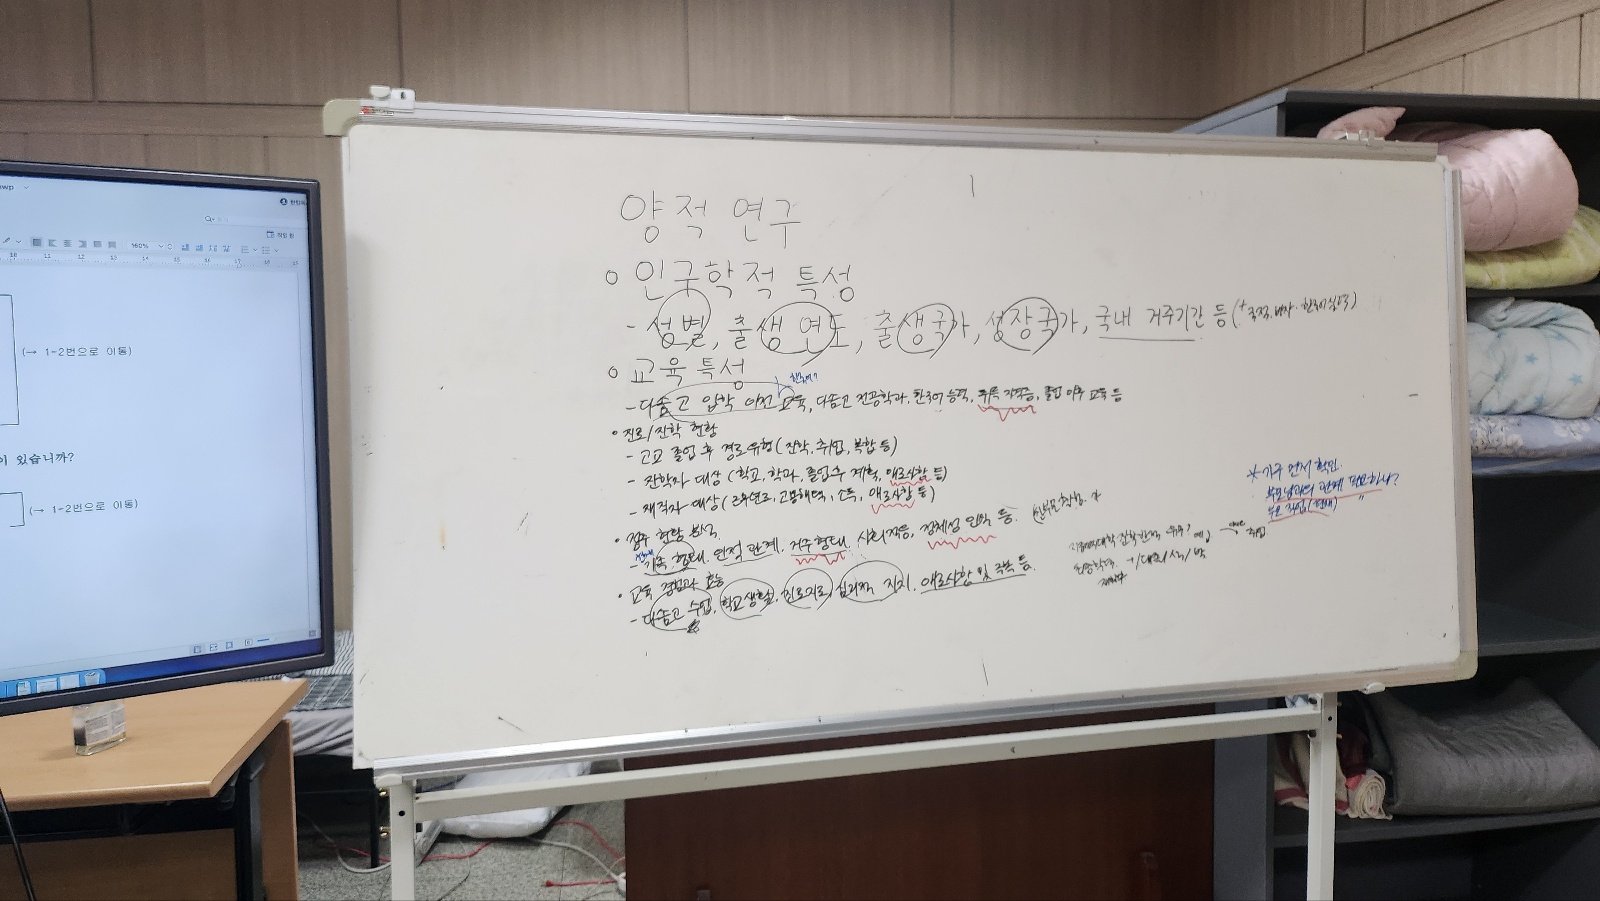 양적 연구
인구학적 특성
- 성별, 출생 연도, 출생국가, 성장국가, 국내 거주기간 등 (+국적, 비자, 한국어실력)
교육 특성
한국어?
- 다솜고 입학 이전 교육, 다솜고 전공학과, 한국어 능력, 취득 자격증, 졸업 이후 교육 등
진로/진학 현황
- 고교 졸업 후 경로유형 (진학, 취업, 복합 등)
- 진학자 대상 (학교, 학과, 졸업 후 계획, 애로사항 등)
- 재직자 대상 (고용형태, 소득, 애로사항 등)
정주 현황 분석
- 가족 형태, 인적 관계, 거주형태, 사회적응, 정체성 인식 등.
교육 경험과 효능
- 다솜고 수업, 학교생활, 진로지도, 심리적 지지, 애로사항 및 극복 등.
* 가구 먼저 확인.
부모님과의 관계 필요하나?
부모 직업 (현재) "
취업
160%
(→ 1-2번으로 이동)
이 있습니까?
(→ 1-2번으로 이동)